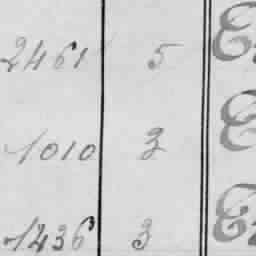 2461 5 E
1010 3 E
1436 3 E